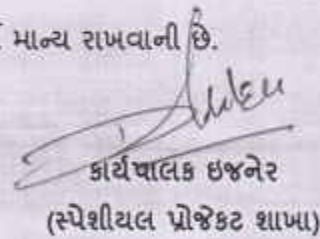 માન્ય રાખવાની છે.
કાર્યપાલક ઇજનેર
(સ્પેશીયલ પ્રોજેકટ શાખા)